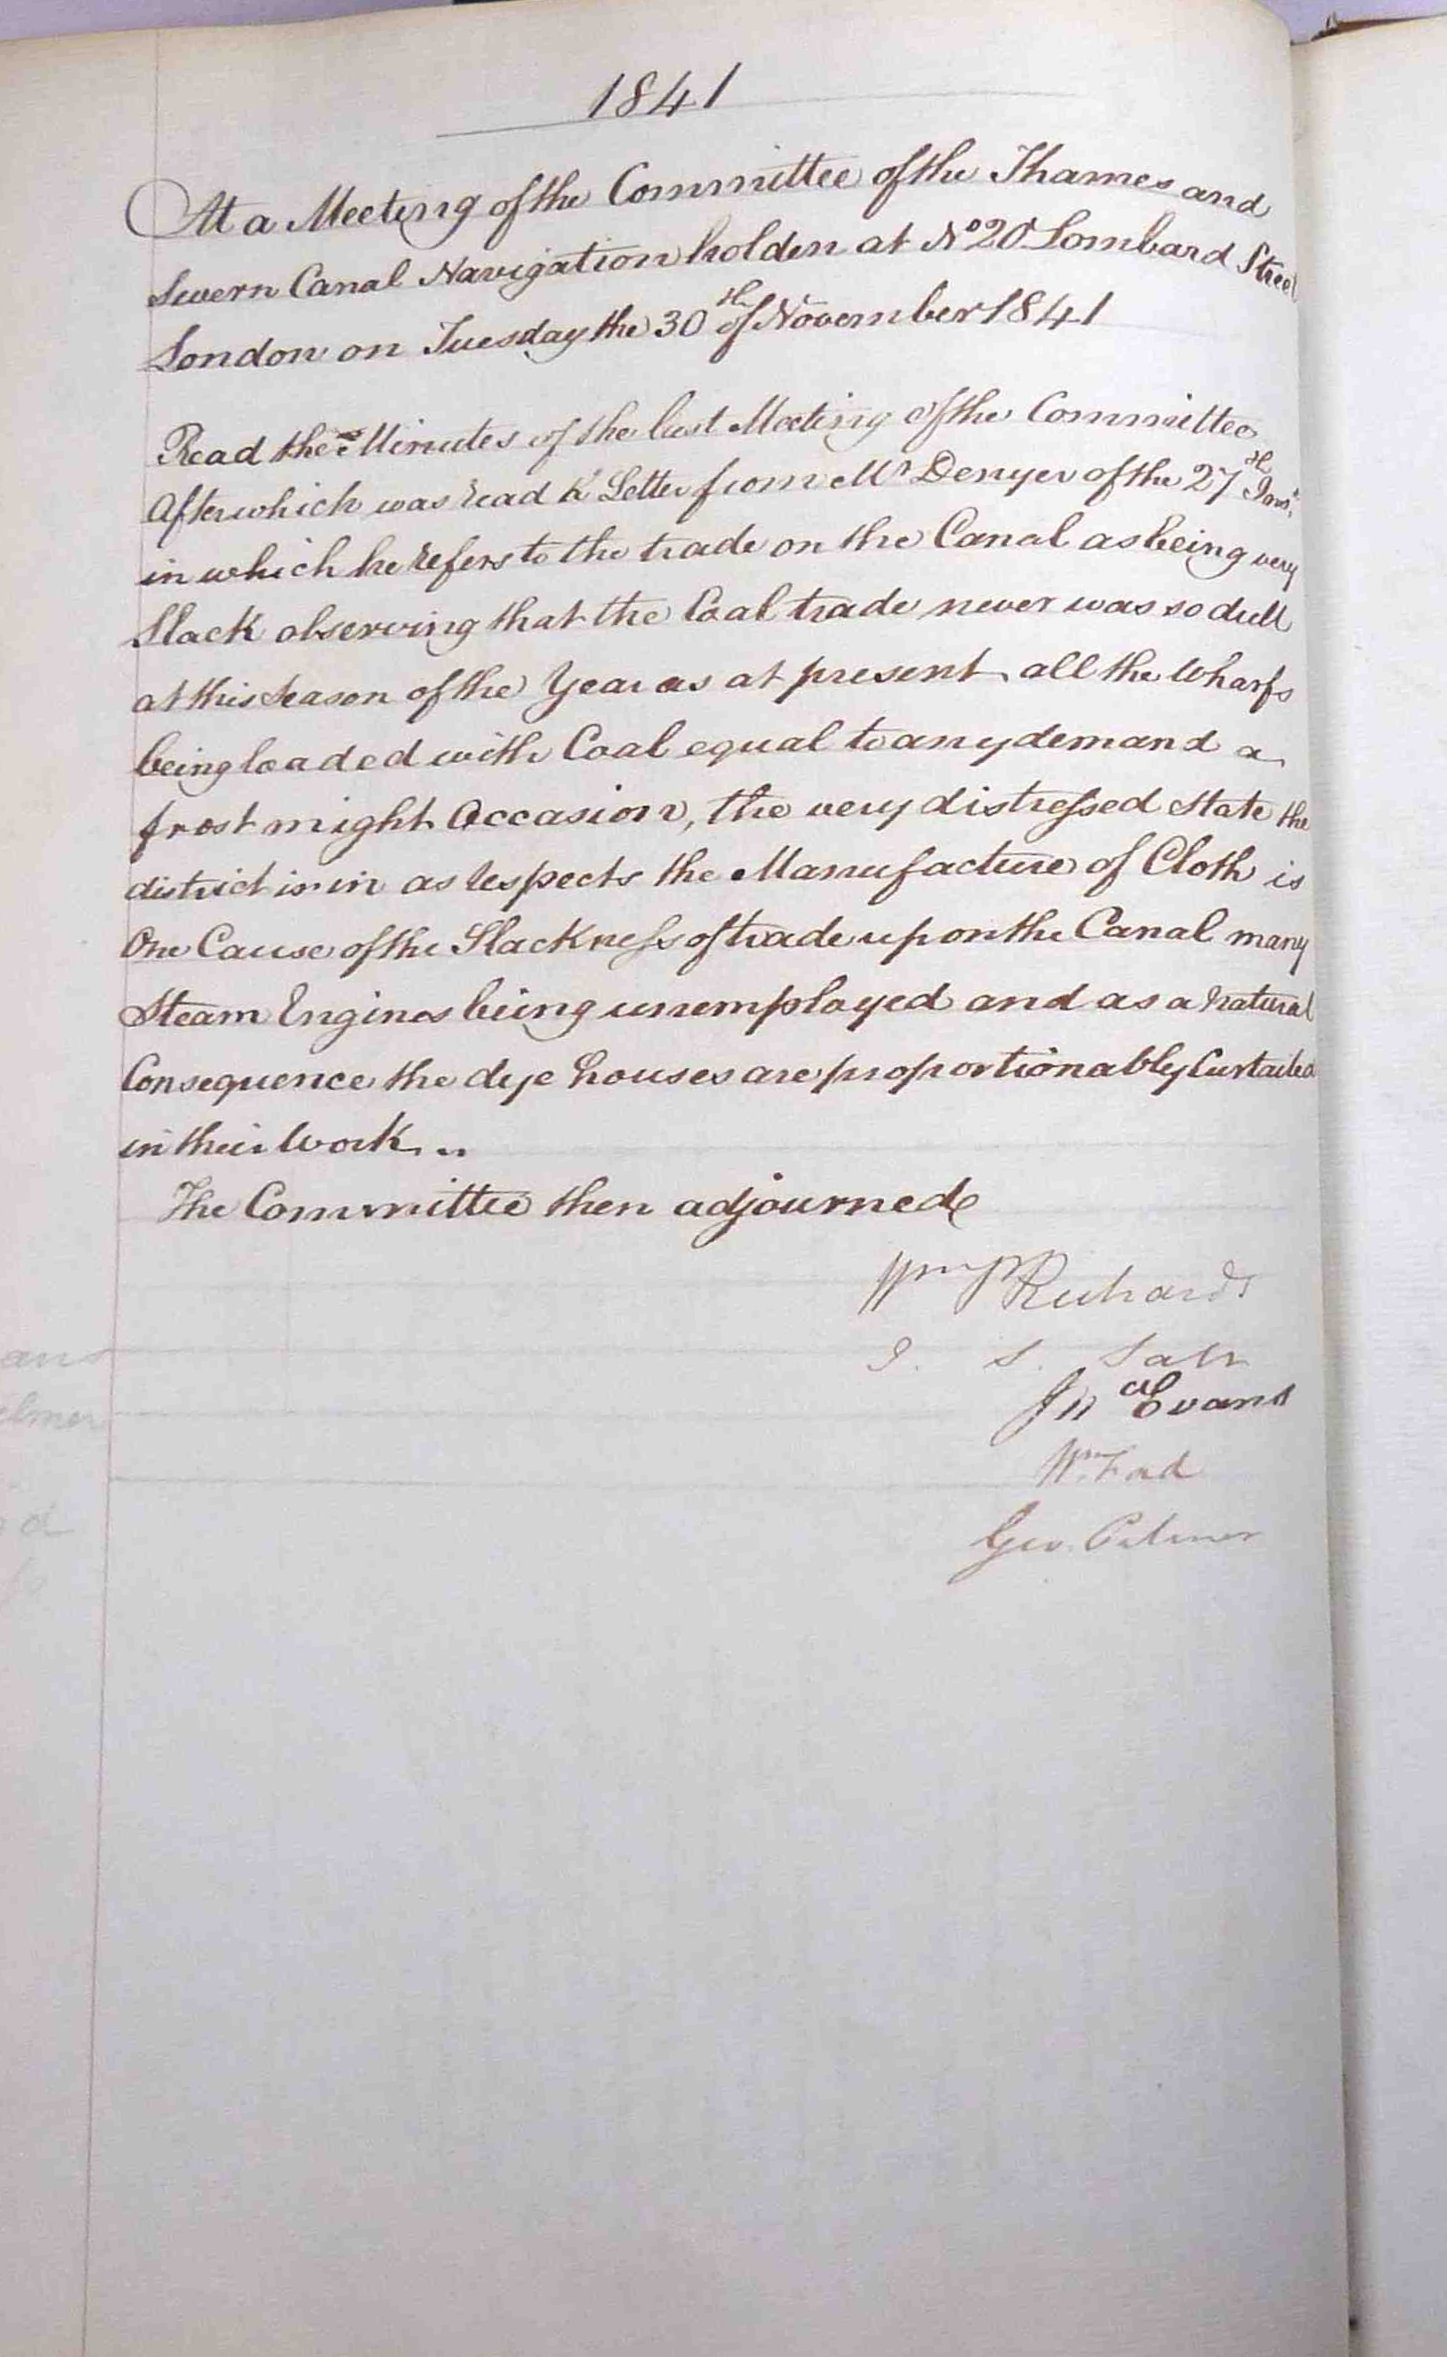 1841
At a Meeting of the Committee of the Thames and
Severn Canal Navigation holden at No 20 Lombard Street
London on Tuesday the 30th of November 1841
Read the Minutes of the last Meeting of the Committee
After which was read a Letter from Mr Denyer of the 27th Inst.
in which he refers to the trade on the Canal as being very
Slack observing that the Coal trade never was so dull
at this Season of the Year as at present all the Wharfs
being loaded with Coal equal to any demand a
frost might Occasion, the very distressed State the
district is in as respects the Manufacture of Cloth is
One Cause of the Slackness of trade upon the Canal many
Steam Engines being unemployed and as a Natural
Consequence the dye houses are proportionably Curtailed
in their Work ..
The Committee then adjourned
Wm Richards
J. S. Salt
Jn Evans
Wm Ford
Geo. Palmer